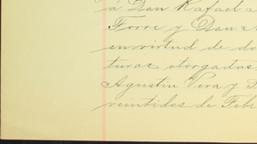 á Don Rafael a
Torre y Don
en virtud de do
turas otorgados
Agustin Vera y
veintidos de Feb